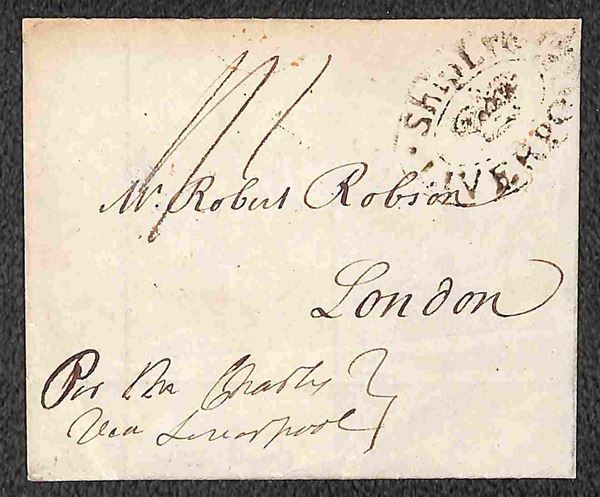 SHIP LRE
LIVERPOOL
Mr. Robert Robson
London
Per the Charles
Via Liverpool